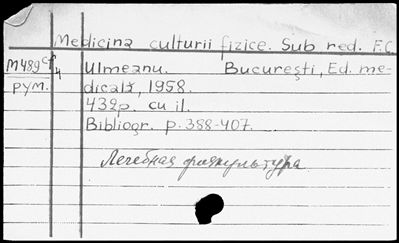 Medicina culturii fizice. Sub red. F.C.
M489cp4 Ulmeanu. București, Ed. me-
РУМ. dicală, 1958.
432p. cu il.
Bibliogr. p. 388-407.
Лечебная физкультура